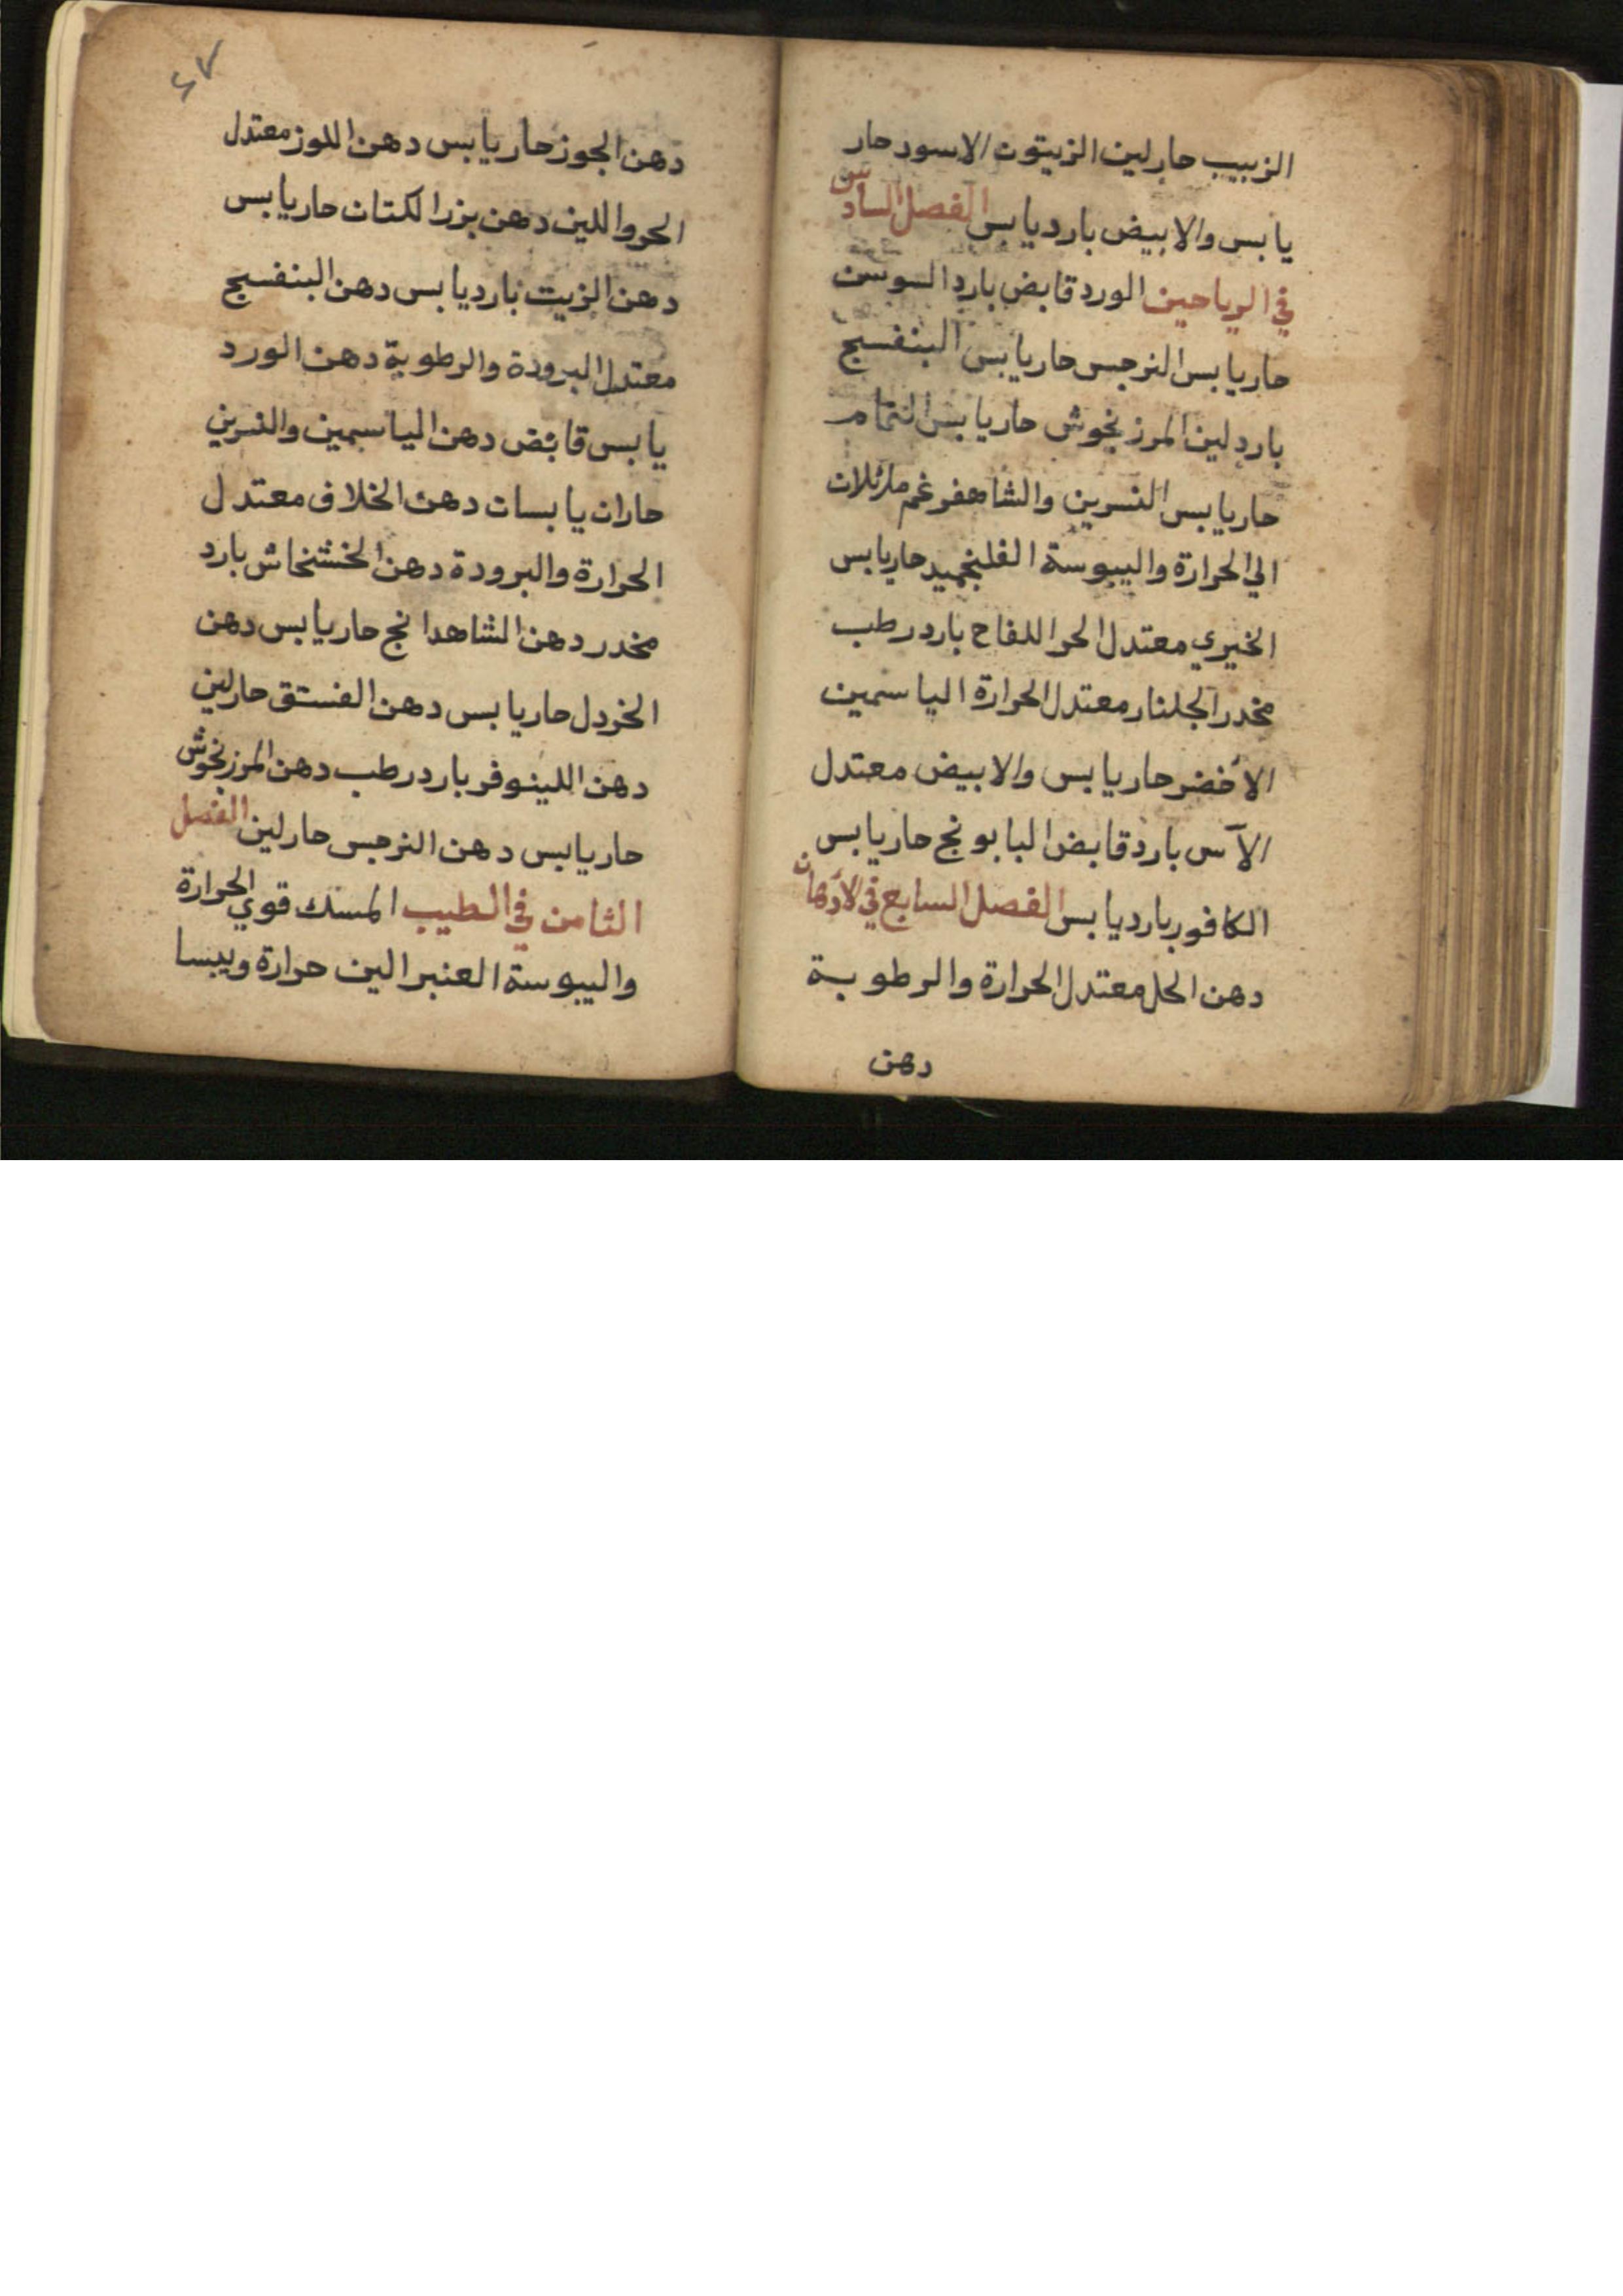 الزبيب حار لين الزيتون الاسود حار
يابس والابيض بارد يابس الفصل السادس
في الرياحين الورد قابض بارد السوسن
حار يابس النرجس حار يابس البنفسج
بارد لين المرزنجوش حار يابس النمام
حار يابس النسرين والشاهفرغم مائلان
الي الحرارة واليبوسة الفلنجميد حار يابس
الخيري معتدل الحر اللفاح بارد رطب
مخدر الجلنار معتدل الحرارة الياسمين
الأخضر حار يابس والابيض معتدل
الآس بارد قابض البابونج حار يابس
الكافور بارد يابس الفصل السابع في الأدهان
دهن الحل معتدل الحرارة والرطوبة
دهن
٢٧
دهن الجوز حار يابس دهن اللوز معتدل
الحر واللين دهن بزر الكتان حار يابس
دهن الزيت بارد يابس دهن البنفسج
معتدل البرودة والرطوبة دهن الورد
يابس قابض دهن الياسمين والنسرين
حاران يابسان دهن الخلاف معتدل
الحرارة والبرودة دهن الخشخاش بارد
مخدر دهن الشاهدانج حار يابس دهن
الخردل حار يابس دهن الفستق حار لين
دهن اللينوفر بارد رطب دهن المرزنجوش
حار يابس دهن النرجس حار لين الفصل
الثامن في الطيب المسك قوي الحرارة
واليبوسة العنبر الين حرارة ويبسا